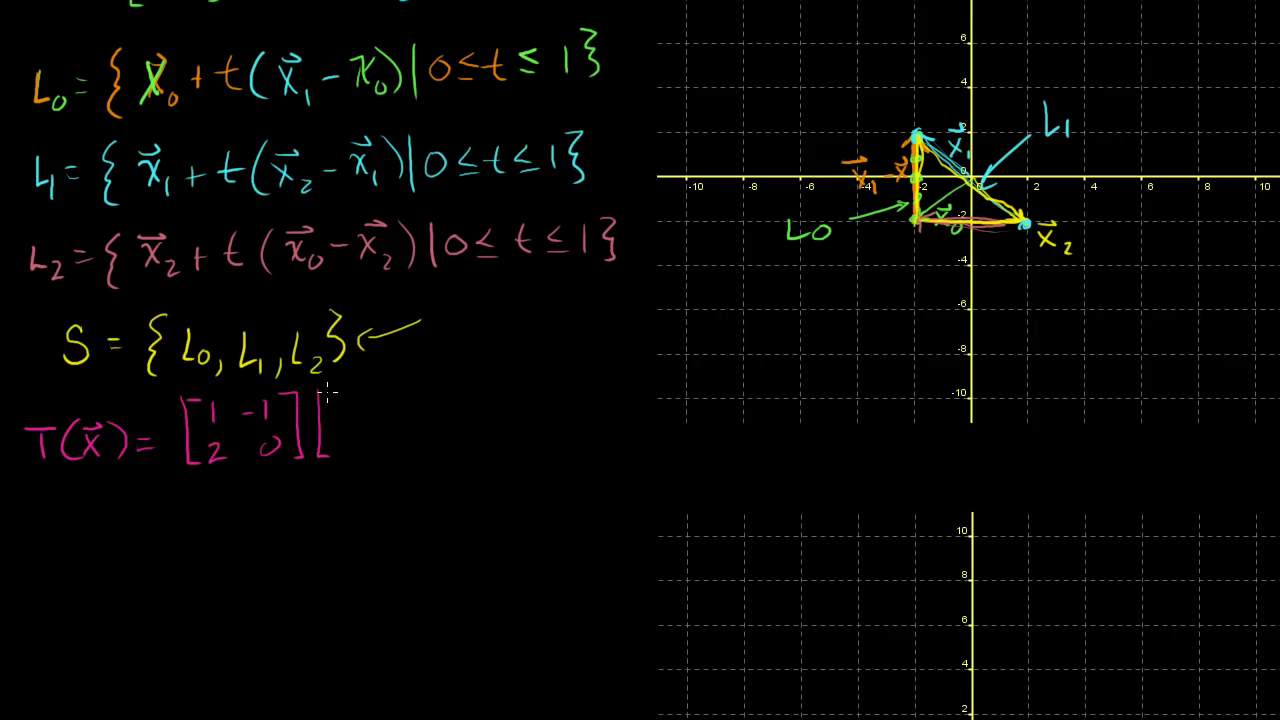 L₀ = { x⃗₀ + t(x⃗₁ − x⃗₀) | 0 ≤ t ≤ 1 }
L₁ = { x⃗₁ + t(x⃗₂ − x⃗₁) | 0 ≤ t ≤ 1 }
L₂ = { x⃗₂ + t(x⃗₀ − x⃗₂) | 0 ≤ t ≤ 1 }
S = { L₀, L₁, L₂ }
T(x⃗) = [1 -1
2 0] [
6
4
2
L₁
x⃗₁
x⃗₁ − x⃗
0
-10 -8 -6 -4 -2 2 4 6 8 10
-2
L₀
x⃗₀
x⃗₂
-4
-6
-8
-10
10
8
6
4
2